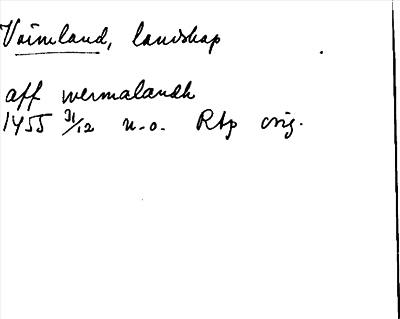 Värmland, landskap
aff wermalandh
1455 31/12 u.o. Rbp orig.